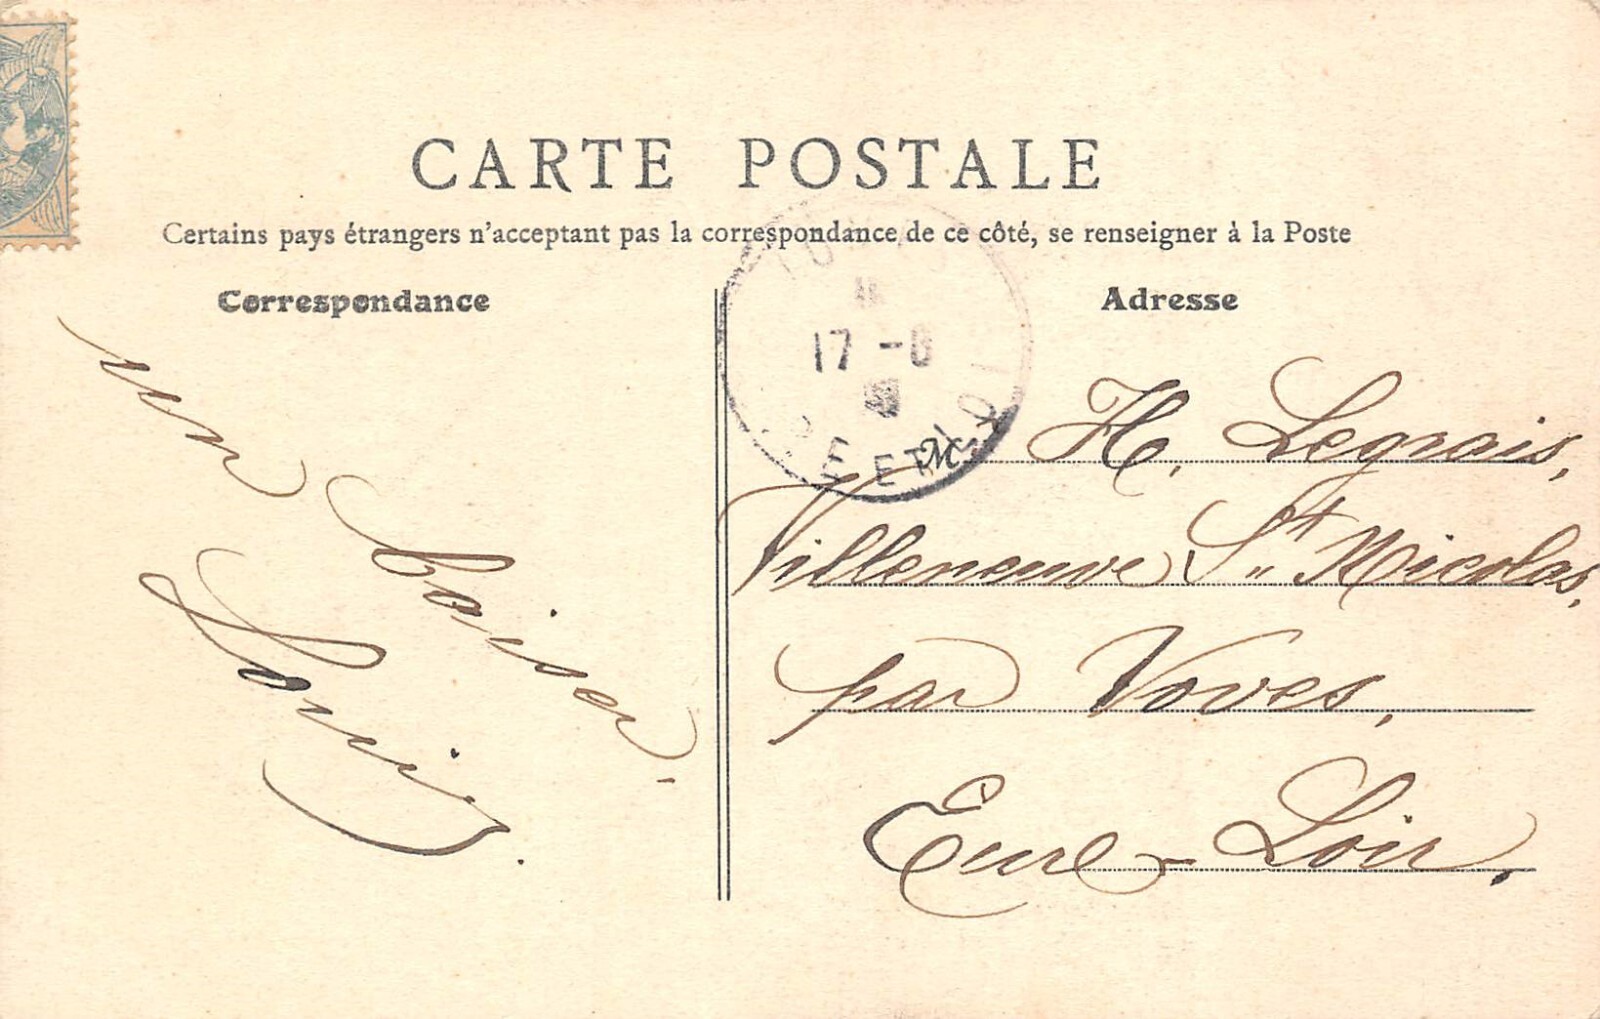 CARTE POSTALE
Certains pays étrangers n'acceptant pas la correspondance de ce côté, se renseigner à la Poste
Correspondance
Adresse
un baiser.
Louis.
17 -6
E ET
H. Legrais,
Villeneuve St Nicolas,
par Voves,
Eure-Loir.